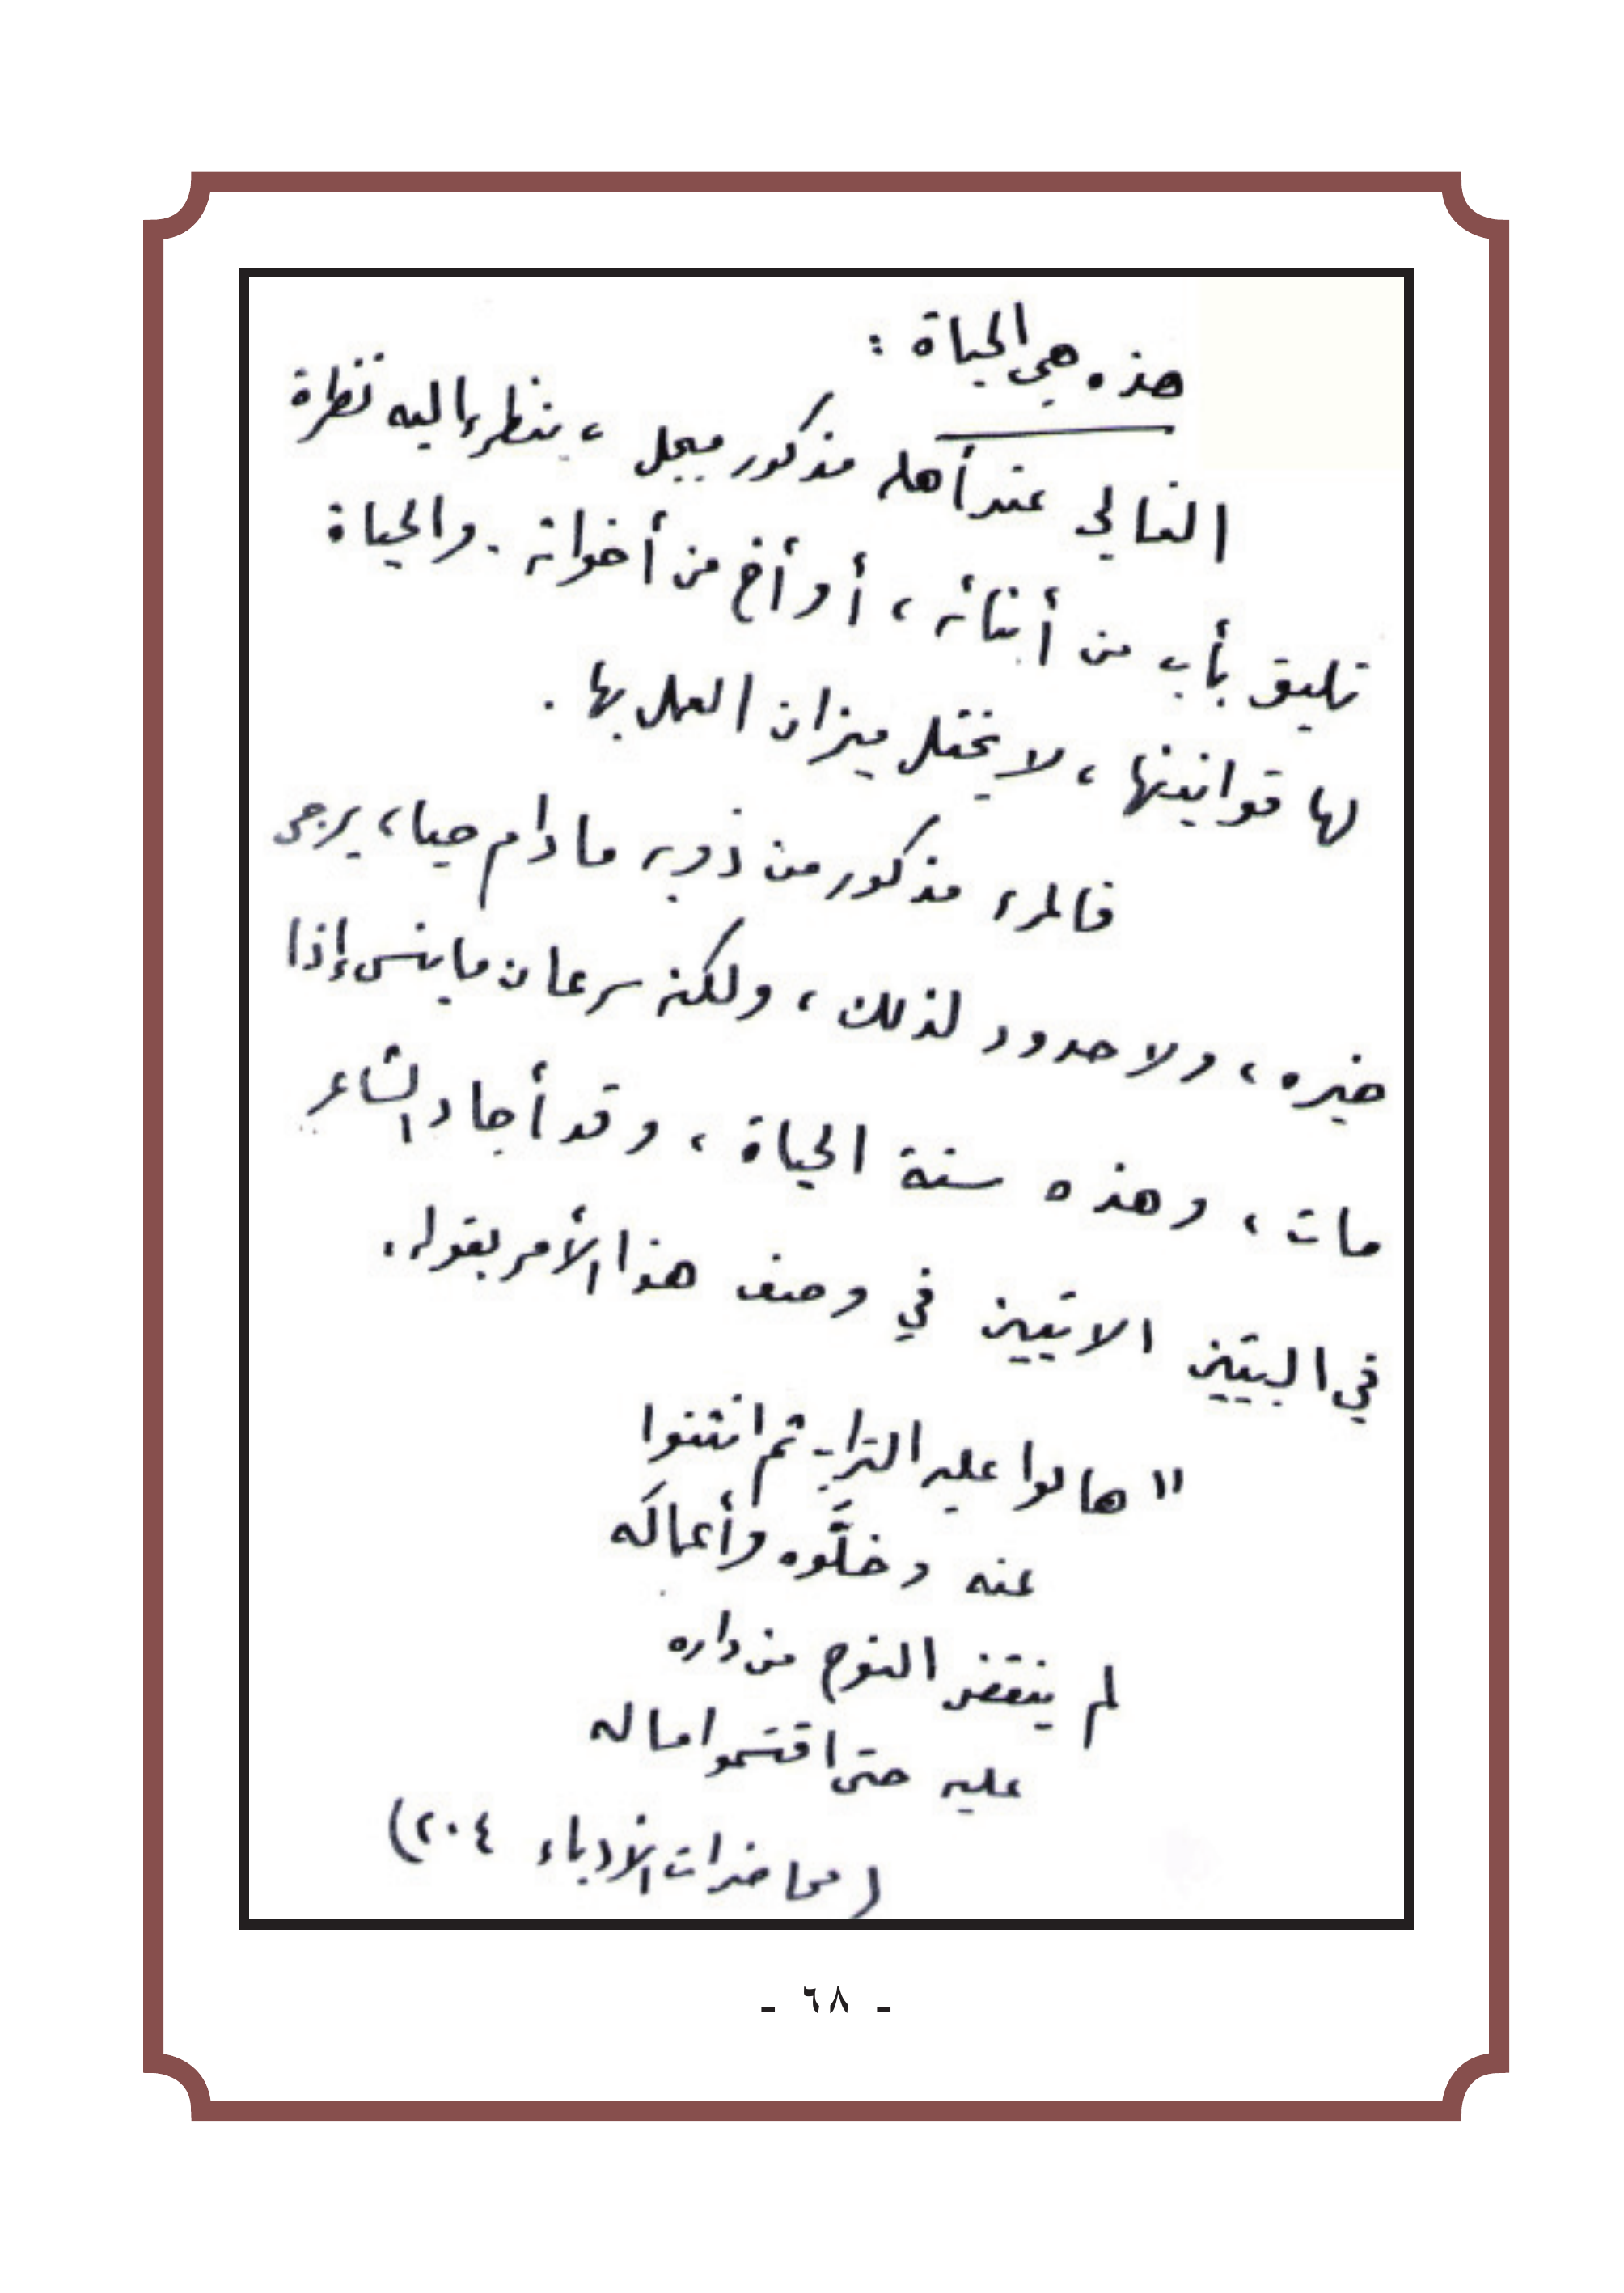 هذه هي الحياة :
الغالي عند أهله مذكور مبجل ، ينظر إليه نظرة
تليق بأب من أبنائه ، أو أخ من أخوانه . والحياة
لها قوانينها ، لا يختل ميزان العمل بها .
فالمرء مذكور من ذويه ما دام حيا ، يرجى
خيره ، ولا حدود لذلك ، ولكنه سرعان ما ينسى إذا
مات ، وهذه سنة الحياة ، وقد أجاد الشاعر
في البيتين الاتيين في وصف هذا الأمر بقوله .
" هالوا عليه التراب ثم انثنوا
عنه وخلَّوه وأعماله
لم ينقض النوح من داره
عليه حتى اقتسموا ماله
(محاضرات الأدباء ٢٠٤)
- ٦٨ -